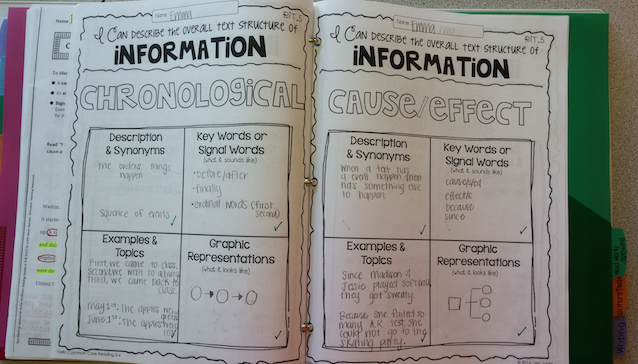 Name Emma
RIT.5
I Can describe the overall text structure of
INFORMATION
CHRONOLOGICAL
Description
& Synonyms
the orders things
happen
squance of events
Key Words or
Signal Words
(what it sounds like)
•before/after
•finally
•ordinal words (first,
second)
Examples &
Topics
First, we came to class.
Second, we went to
Third, we came back to
class.
May 1st: The apples were
June 1st: The apples were
Graphic
Representations
(what it looks like)
Name Emma
RIT.5
I Can describe the overall text structure of
INFORMATION
CAUSE/EFFECT
Description
& Synonyms
When a text has
a event happen then
has something else
to happen.
Key Words or
Signal Words
(what it sounds like)
cause/ed
effect/s
because
since
Examples &
Topics
Since Madison &
Jessie played softball
they got sweaty.
Because she failed so
many A.R. test she
could not go to the
skating party.
Graphic
Representations
(what it looks like)